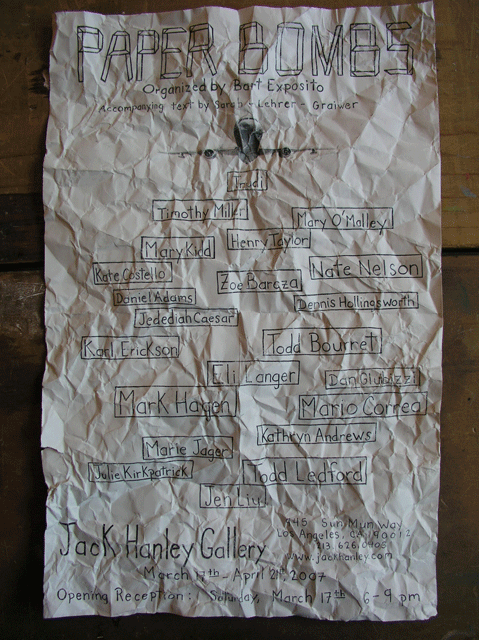 PAPER BOMBS
Organized by Bart Exposito
Accompanying text by Sarah Lehrer-Graiwer
Timothy Miller
Mary O'Malley
Mary Kidd
Henry Taylor
Kate Costello
Zoe Barcza
Nate Nelson
Daniel Adams
Dennis Hollingsworth
Jedediah Caesar
Karl Erickson
Todd Bourret
Eli Langer
Dan
Mark Hagen
Mario Correa
Kathryn Andrews
Marie Jager
Julie Kirkpatrick
Todd Ledford
Jen Liu
Jack Hanley Gallery
945 Sun Mun Way
Los Angeles, CA 90012
213.626.0403
www.jackhanley.com
March 17th - April 21st, 2007
Opening Reception: Saturday, March 17th 6-9 pm